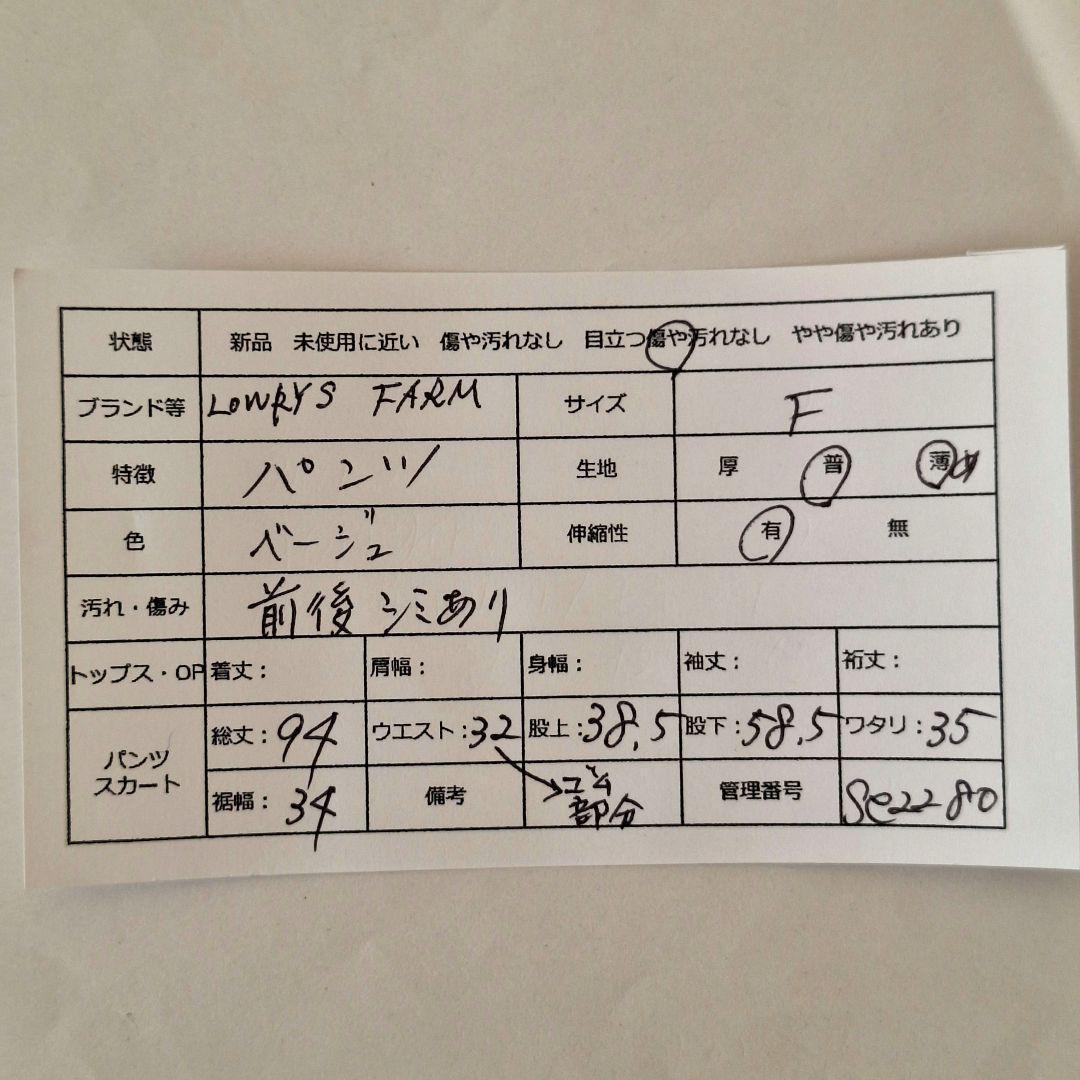 状態 新品 未使用に近い 傷や汚れなし 目立つ傷や汚れなし やや傷や汚れあり
ブランド等 LOWRYS FARM サイズ F
特徴 パンツ 生地 厚 普 薄め
色 ベージュ 伸縮性 有 無
汚れ・傷み 前後シミあり
トップス・OP 着丈: 肩幅: 身幅: 袖丈: 裄丈:
パンツ スカート 総丈:94 ウエスト:32 股上:38.5 股下:58.5 ワタリ:35
裾幅:34 備考 ゴム部分 管理番号 Se2280